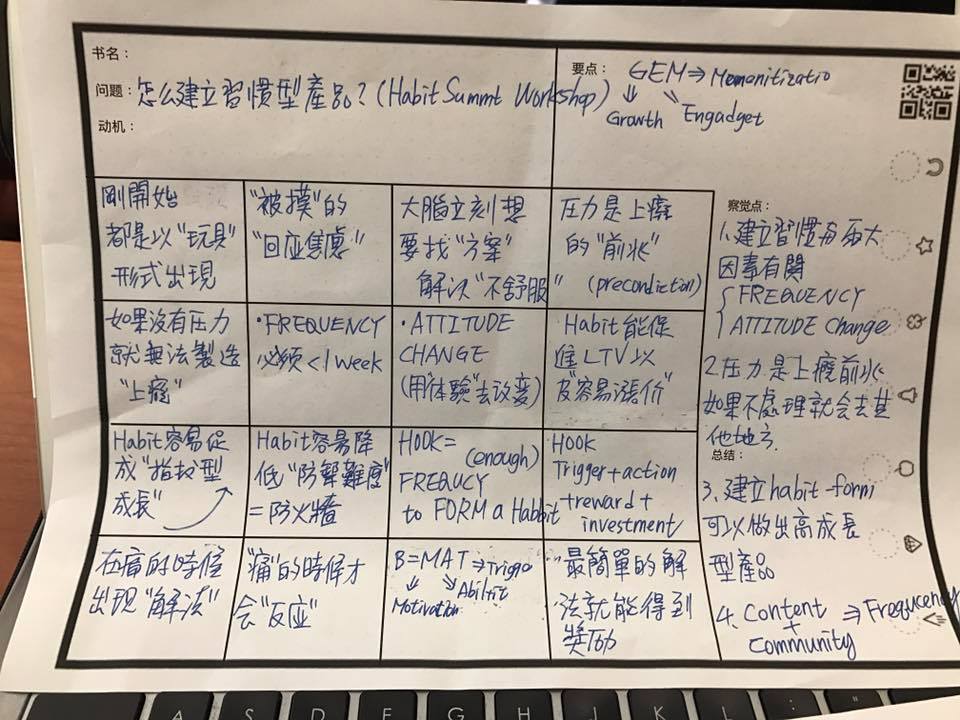 书名：
问题：怎么建立習慣型產品？(Habit Summt Workshop)
动机：
要点： GEM ⇒ Memanitizatio
Growth Engadget
剛開始
都是以"玩具"
形式出現
"被摸"的
"回应焦慮"
大腦立刻想
要找"方案"
解決"不舒服"
压力是上癮
的"前兆"
(precondiction)
如果沒有压力
就無法製造
"上癮"
·FREQUENCY
必须<1week
·ATTITUDE
CHANGE
(用"体驗"去改变)
Habit能促
進LTV以
及"容易漲价"
Habit容易促
成"指数型
成長"
Habit容易降
低"防禦難度"
=防火牆
HOOK= (enough)
FREQUCY
to FORM a Habbit
HOOK
Trigger+action
+reward+
investment
在痛的時候
出現"解法"
"痛"的時候才
会"反应"
B=MAT⇒Triger
Abiltit
Motivation
"最簡單的解
法就能得到
獎励
察觉点：
1.建立習慣与兩大
因素有関
FREQUENCY
ATTITUDE Change
2.压力是上癮前兆
如果不處理就会去其
他地方
总结：
3.建立habit-form
可以做出高成長
型產品
4.Content ⇒Frequcency
+
Community
A S D F G H J K L : "